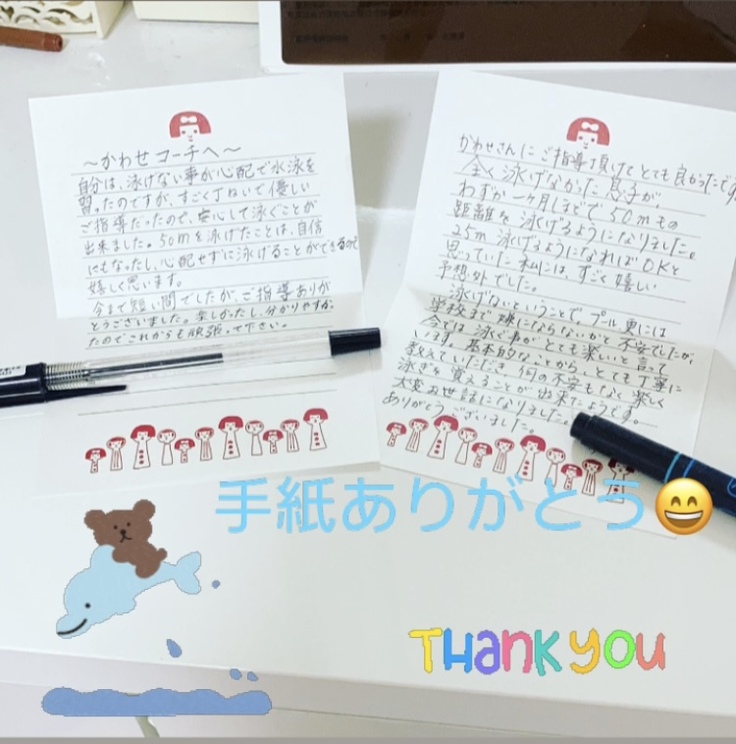 ～かわせコーチへ～
自分は、泳げない事が心配で水泳を
習ったのですが、すごく丁ねいで優しい
ご指導だったので、安心して泳ぐことが
出来ました。50mを泳げたことは、自信
にもなったし、心配せずに泳げることができるので
嬉しく思います。
今まで短い間でしたが、ご指導ありが
とうございました。楽しかったし、分かりやすか
たのでこれからも頑張って下さい。
かわせさんにご指導頂けてとても良かったです
全く泳げなかった息子が
わずか一ヶ月ほどで50mもの
距離を泳げるようになりました。
25m泳げるようになればOKと
思っていた私には、すごく嬉しい
予想外でした。
泳げないということで、プール更には
学校まで嫌にならないかと不安でしたが、
今では泳ぐ事がとても楽しいと言って
います。基本的なことから、とても丁寧に
教えていただき、何の不安もなく楽しく
泳ぎを覚えることが出来たようです。
大変お世話になりました。
ありがとうございました。
手紙ありがとう😄
THANK YOU